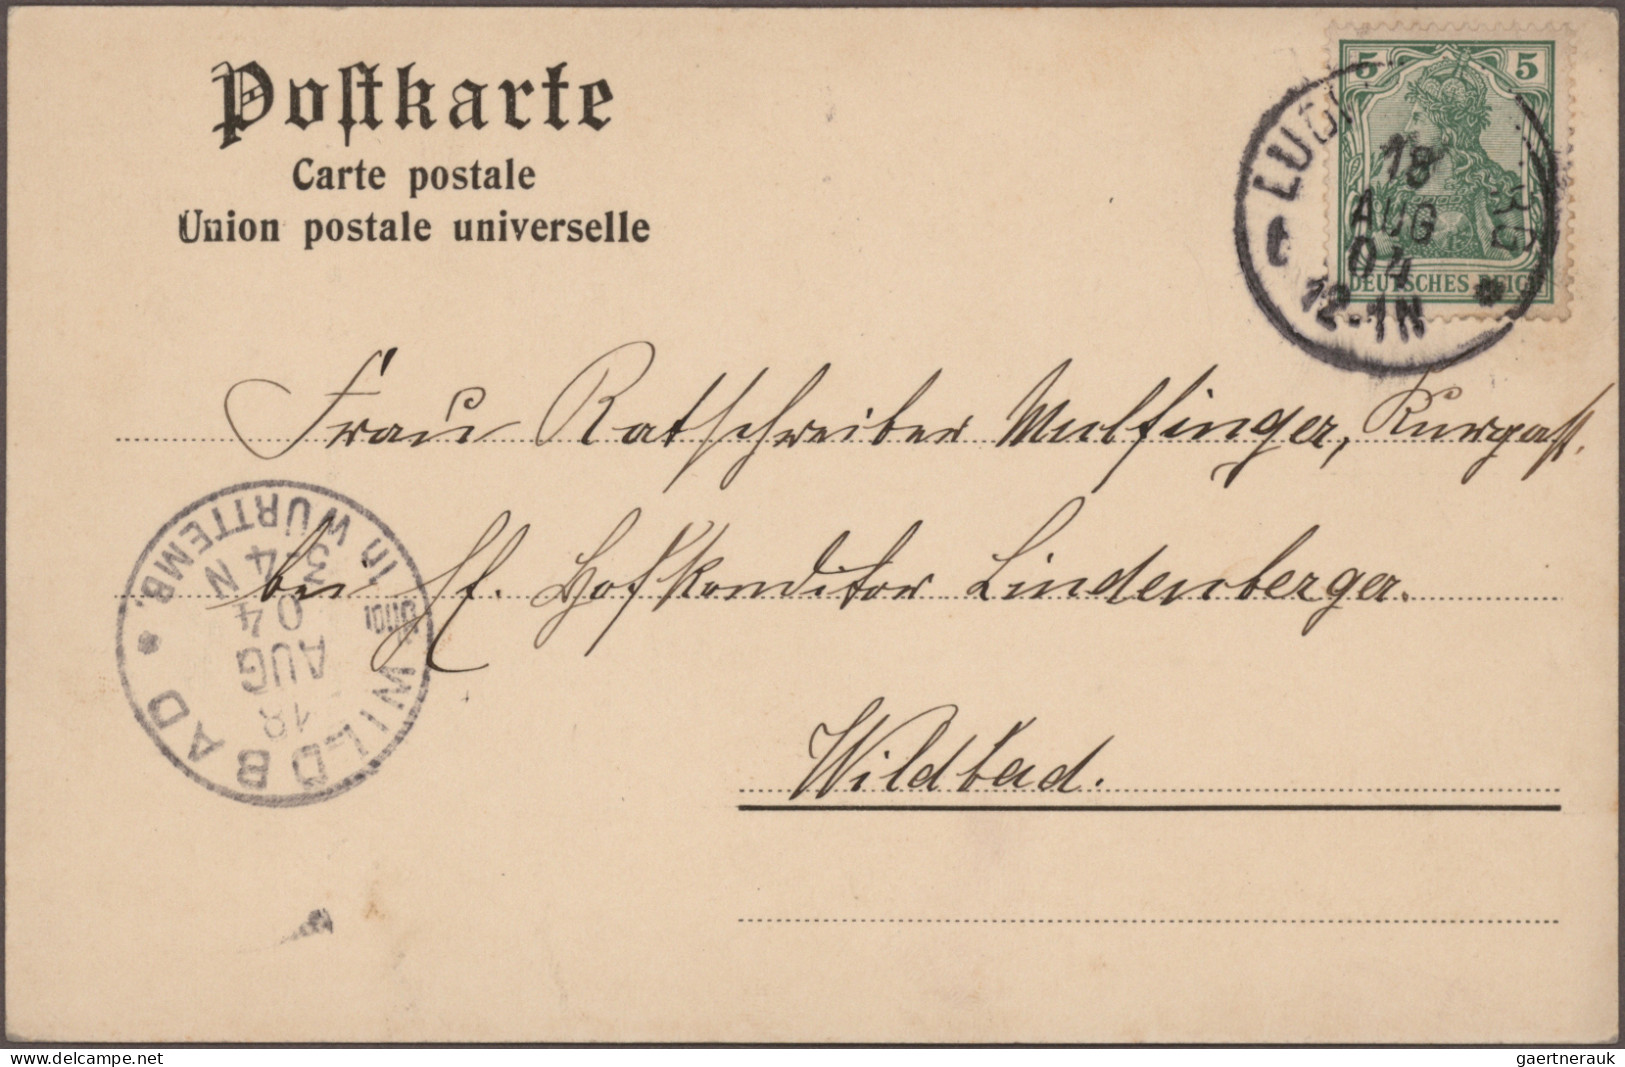 Postkarte
Carte postale
Union postale universelle
5 5
DEUTSCHES REICH
18
AUG
04
12-1N
Frau Ratschreiber Mulfinger, Kurgast.
bei H. Hofkonditor Lindenberger.
Wildbad.
WILDBAD
in WÜRTTEMB.
18
AUG
04
3-4 N
www.delcampe.net
gaertnerauk